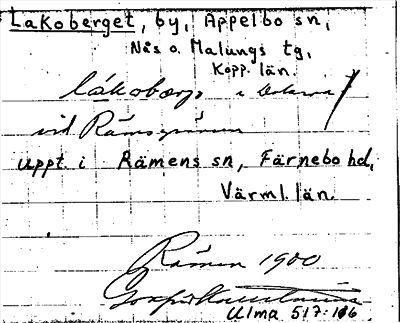 Lakoberget, by, Äppelbo sn,
Nås o. Malungs tg,
Kopp. län.
låkobærje i Dalarna
vid Rämsgränsen
uppt. i Rämens sn, Färnebo hd,
Värml. län.
Rämen 1900
Ulma 517:166